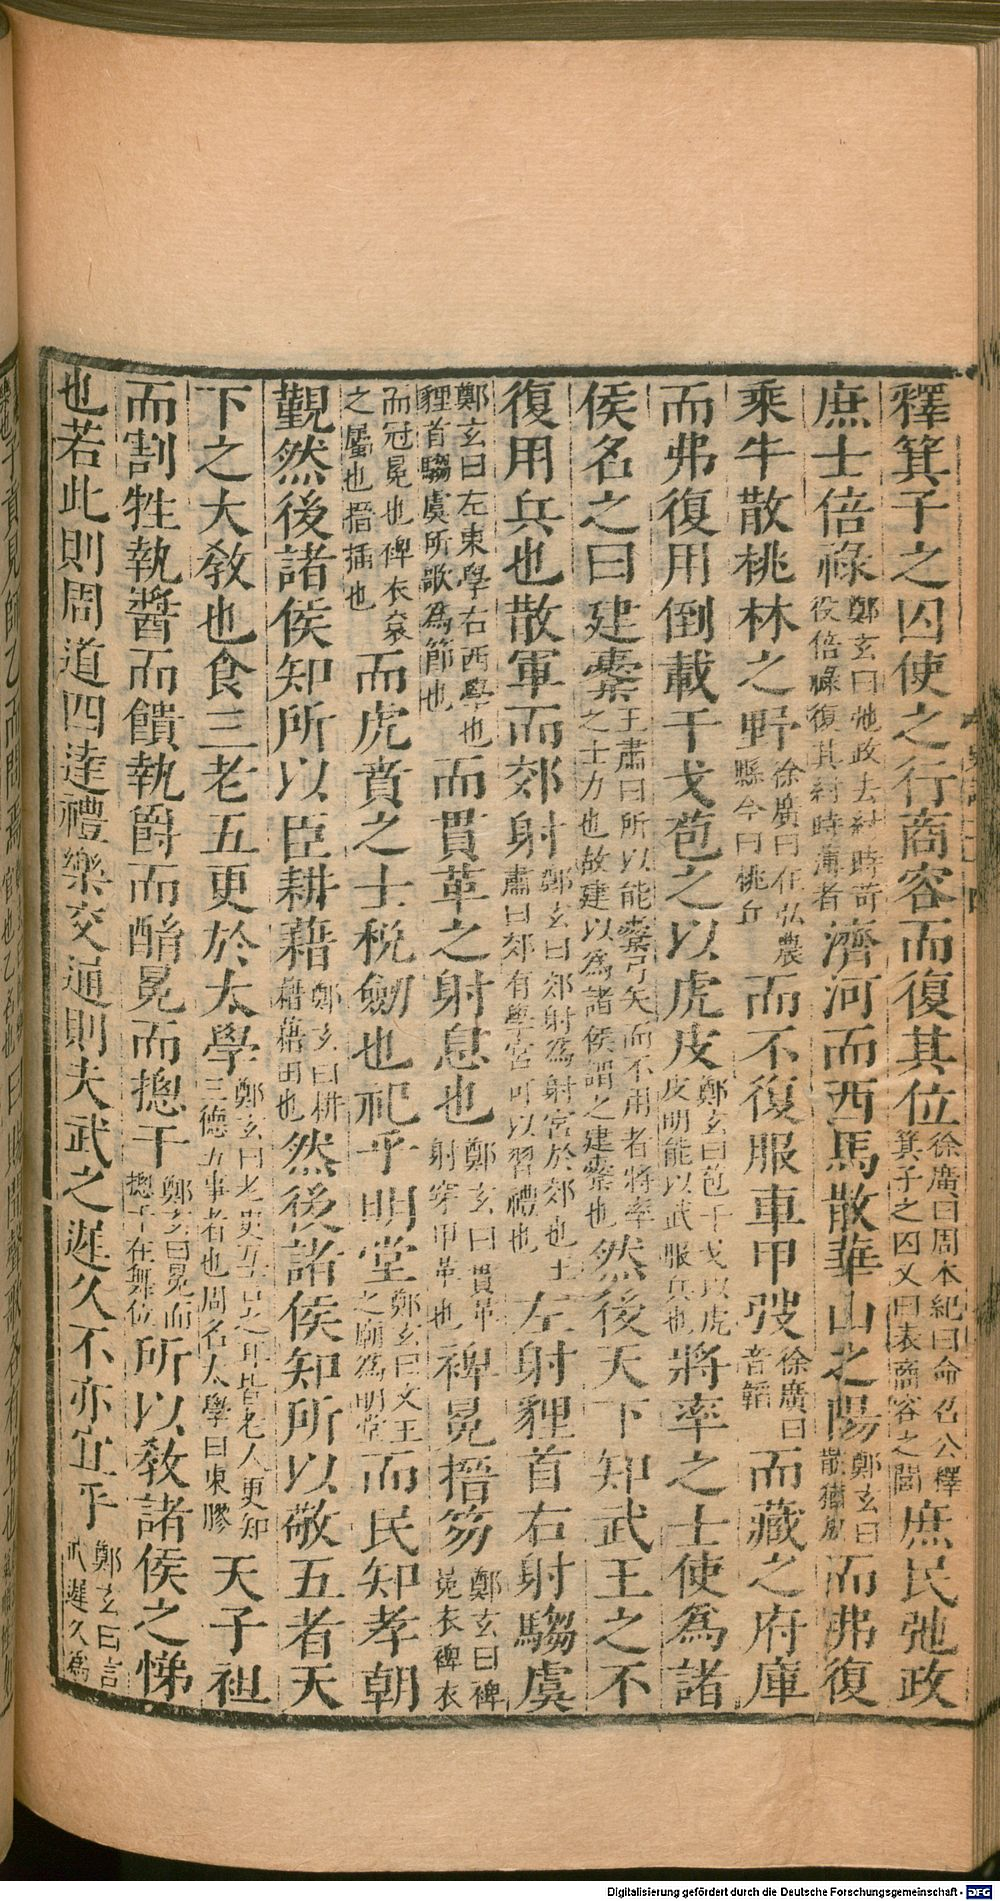 釋箕子之囚使之行商容而復其位徐廣曰周本紀曰命召公釋箕子之囚又曰表商容之閭庶民弛政
庶士倍祿鄭玄曰弛政去紂時苛役倍祿復其紂時薄者濟河而西馬散華山之陽鄭玄曰散猶放而弗復
乘牛散桃林之野徐廣曰在弘農縣今曰桃丘而不復服車甲弢徐廣曰音韜而藏之府庫
而弗復用倒載干戈苞之以虎皮鄭玄曰苞干戈以虎皮明能以武服兵也將率之士使為諸
侯名之曰建櫜王肅曰所以能櫜弓矢而不用者將率之士力也故建以為諸侯謂之建櫜也然後天下知武王之不
復用兵也散軍而郊射鄭玄曰郊射為射宮於郊也王肅曰郊有學宮可以習禮也左射貍首右射騶虞
鄭玄曰左東學右西學也貍首騶虞所歌為節也而貫革之射息也鄭玄曰貫革射穿甲革也裨冕搢笏鄭玄曰裨冕衣裨衣
而冠冕也裨衣袞之屬也搢插也而虎賁之士稅劒也祀乎明堂鄭玄曰文王之廟為明堂而民知孝朝
覲然後諸侯知所以臣耕藉鄭玄曰耕藉藉田也然後諸侯知所以敬五者天
下之大敎也食三老五更於太學鄭玄曰老更互言之耳皆老人更知三德五事者也周名太學曰東膠天子袒
而割牲執醬而饋執爵而酳冕而摠干鄭玄曰冕而摠干在舞位所以敎諸侯之悌
也若此則周道四達禮樂交通則夫武之遲久不亦宜乎鄭玄曰言武遲久為
Digitalisierung gefördert durch die Deutsche Forschungsgemeinschaft - DFG